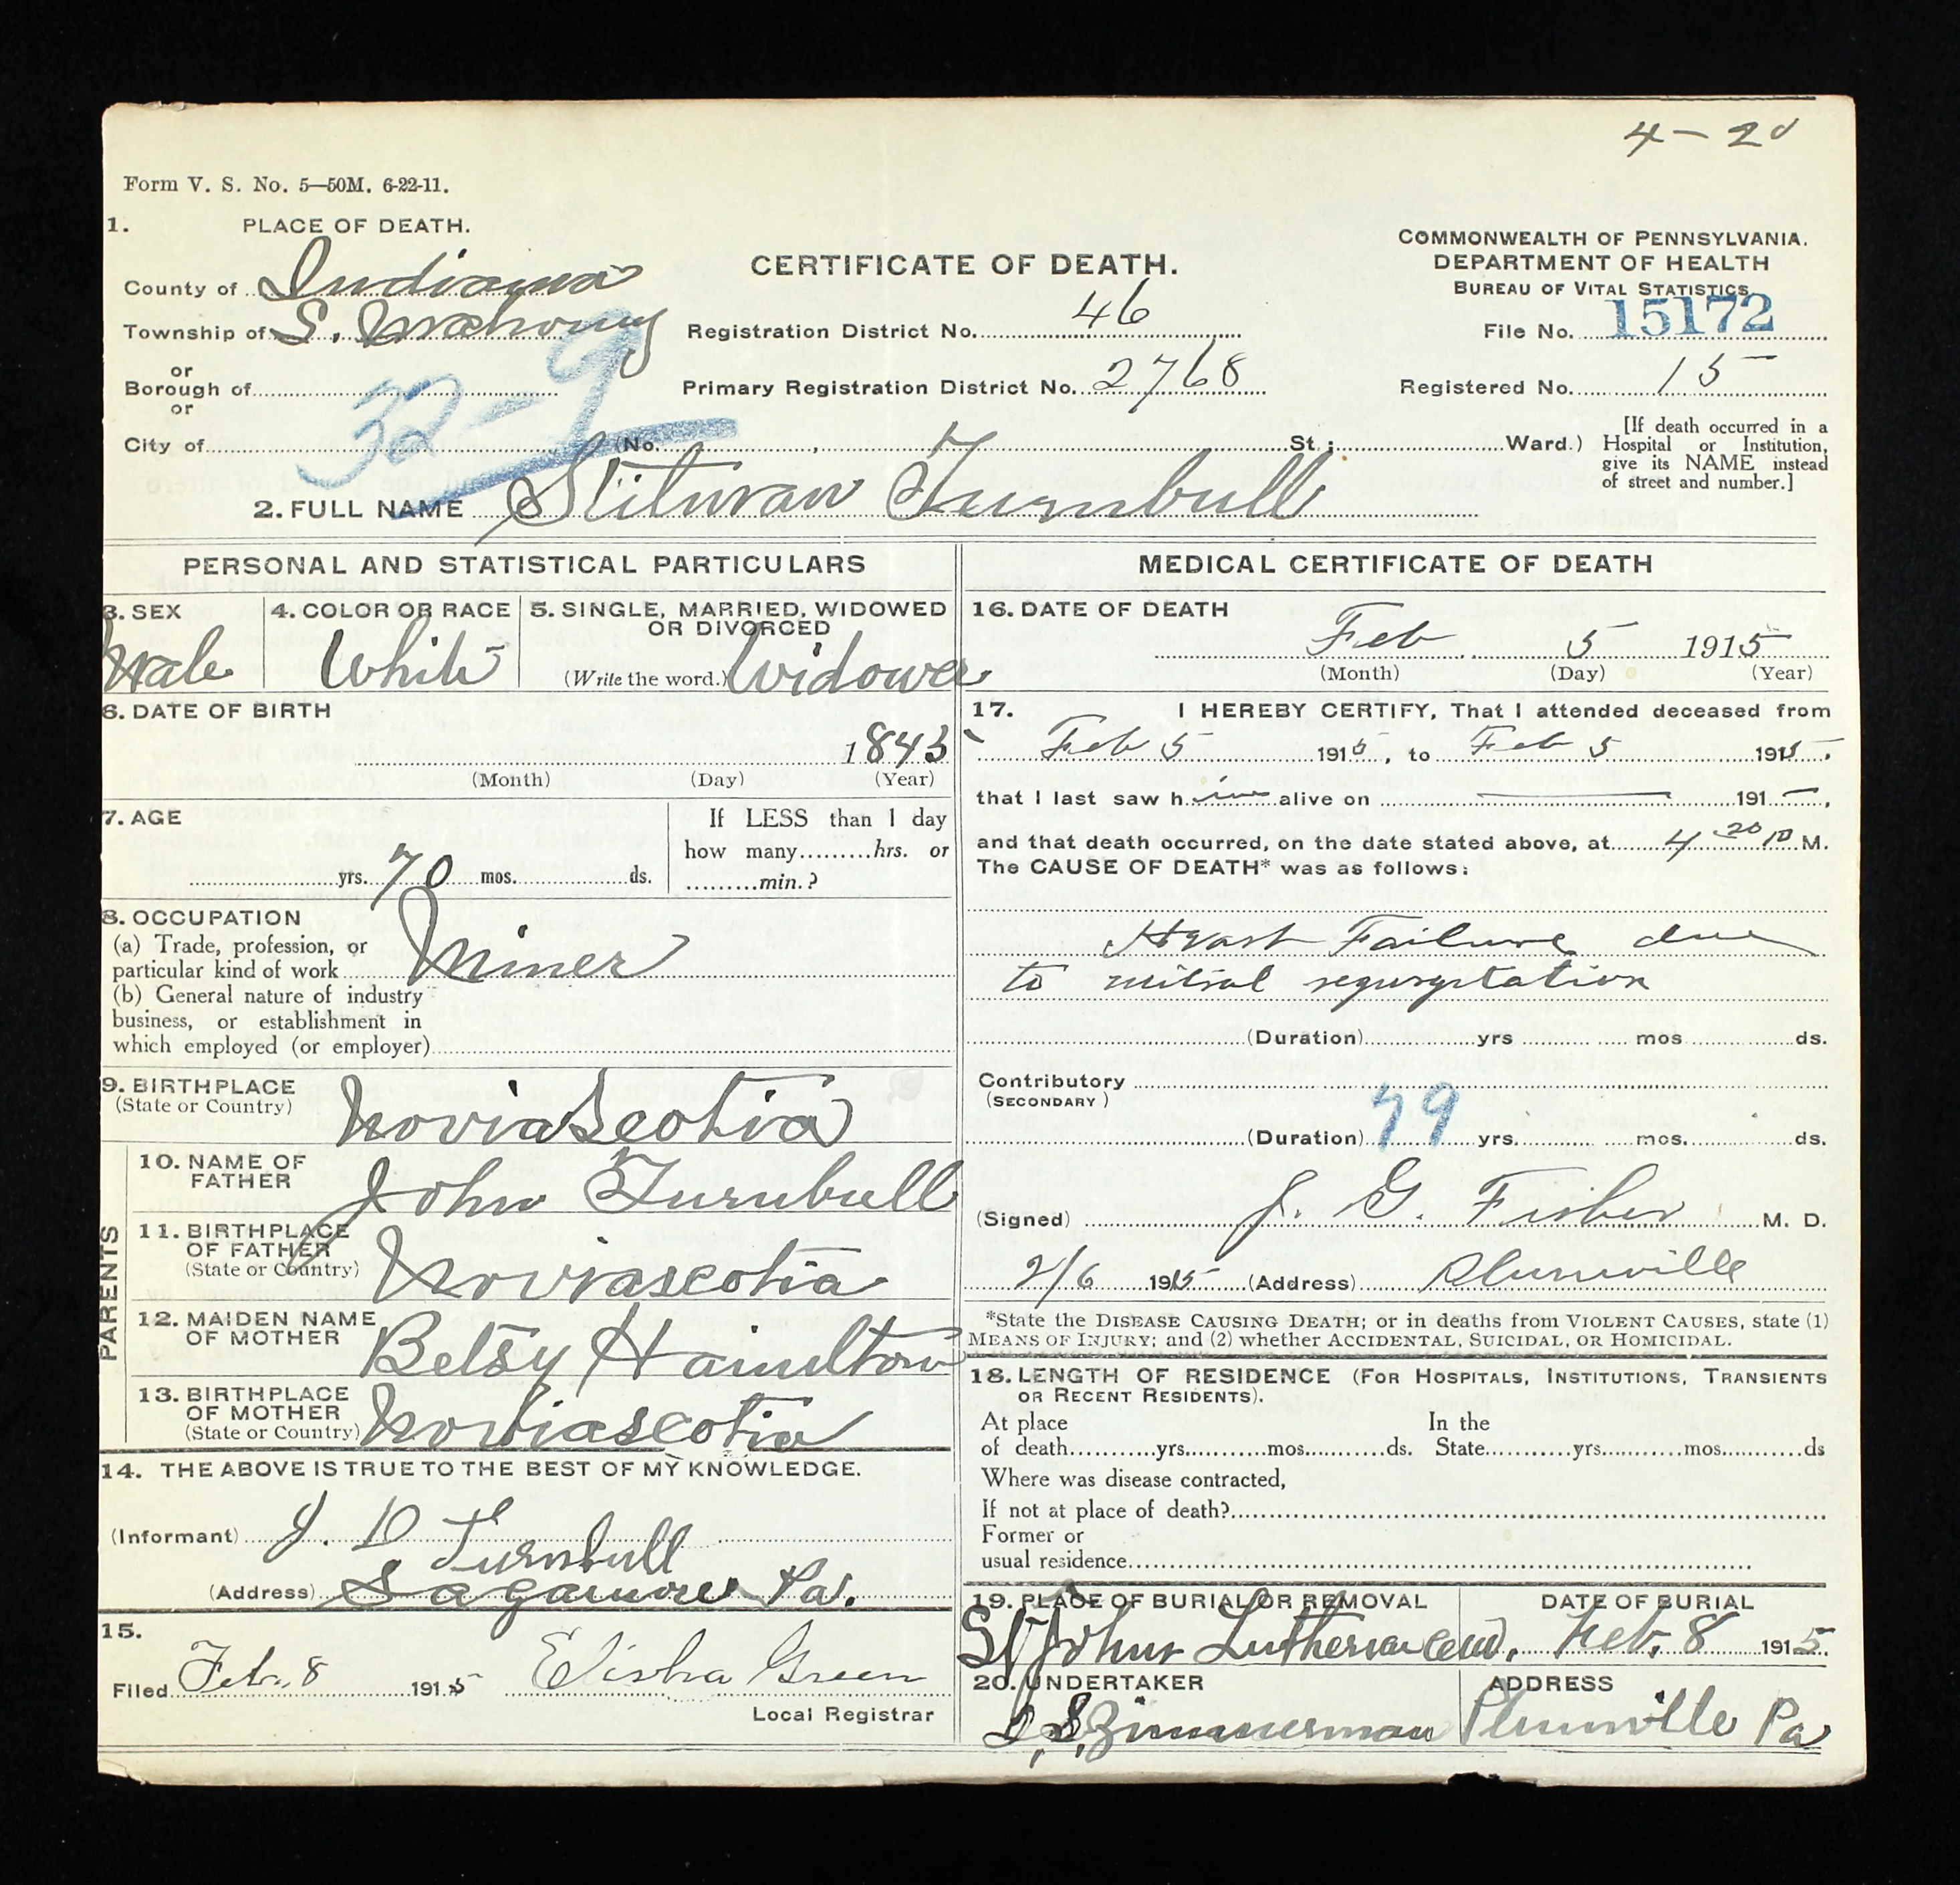 4-20
Form V. S. No. 5—50M. 6-22-11.
1. PLACE OF DEATH.
County of Indiana
Township of S. Mahoning
or
Borough of
or
City of (No. , St.; Ward.)
32-9
CERTIFICATE OF DEATH.
Registration District No. 46
Primary Registration District No. 2768
COMMONWEALTH OF PENNSYLVANIA.
DEPARTMENT OF HEALTH
BUREAU OF VITAL STATISTICS
File No. 15172
Registered No. 15
[If death occurred in a
Hospital or Institution,
give its NAME instead
of street and number.]
2. FULL NAME Turnbull
PERSONAL AND STATISTICAL PARTICULARS
3. SEX
Male
4. COLOR OR RACE
White
5. SINGLE, MARRIED, WIDOWED
OR DIVORCED
(Write the word.) Widower
6. DATE OF BIRTH
1843
(Month) (Day) (Year)
7. AGE
yrs. 70 mos. ds.
If LESS than 1 day
how many hrs. or
min.?
8. OCCUPATION
(a) Trade, profession, or
particular kind of work Miner
(b) General nature of industry
business, or establishment in
which employed (or employer)
9. BIRTHPLACE
(State or Country) Novia Scotia
PARENTS
10. NAME OF
FATHER John Turnbull
11. BIRTHPLACE
OF FATHER
(State or Country) Noviascotia
12. MAIDEN NAME
OF MOTHER Betsy Hamilton
13. BIRTHPLACE
OF MOTHER
(State or Country) Noviascotia
14. THE ABOVE IS TRUE TO THE BEST OF MY KNOWLEDGE.
(Informant) J. D Turnbull
(Address) Sagamore Pa.
15.
Filed Feb. 8 1915 Elisha Green
Local Registrar
MEDICAL CERTIFICATE OF DEATH
16. DATE OF DEATH
Feb 5 1915
(Month) (Day) (Year)
17. I HEREBY CERTIFY, That I attended deceased from
Feb 5 1915, to Feb 5 1915,
that I last saw him alive on — 191—,
and that death occurred, on the date stated above, at 4 20 P M.
The CAUSE OF DEATH* was as follows:
Heart Failure due
to mitral regurgitation
(Duration) yrs mos ds.
Contributory
(SECONDARY)
(Duration) yrs. mos. ds.
79
(Signed) J. G. Fisher M. D.
2/6 1915 (Address) Plumville
*State the DISEASE CAUSING DEATH; or in deaths from VIOLENT CAUSES, state (1)
MEANS OF INJURY; and (2) whether ACCIDENTAL, SUICIDAL, OR HOMICIDAL.
18. LENGTH OF RESIDENCE (FOR HOSPITALS, INSTITUTIONS, TRANSIENTS
OR RECENT RESIDENTS).
At place In the
of death yrs. mos. ds. State yrs. mos. ds
Where was disease contracted,
If not at place of death?
Former or
usual residence
19. PLACE OF BURIAL OR REMOVAL
St Johns Lutheran Cem.
DATE OF BURIAL
Feb. 8 1915.
20. UNDERTAKER
Zimmerman
ADDRESS
Plumville Pa